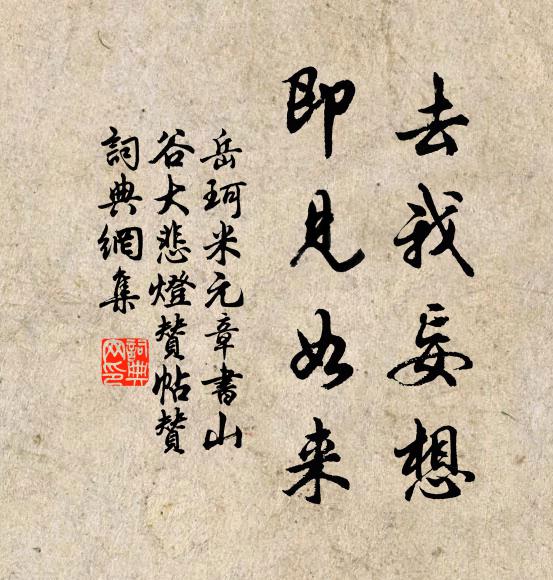 去我妄想
即见如来
岳珂米元章書山
谷大悲燈贊帖贊
詞典網集
詞典
网印